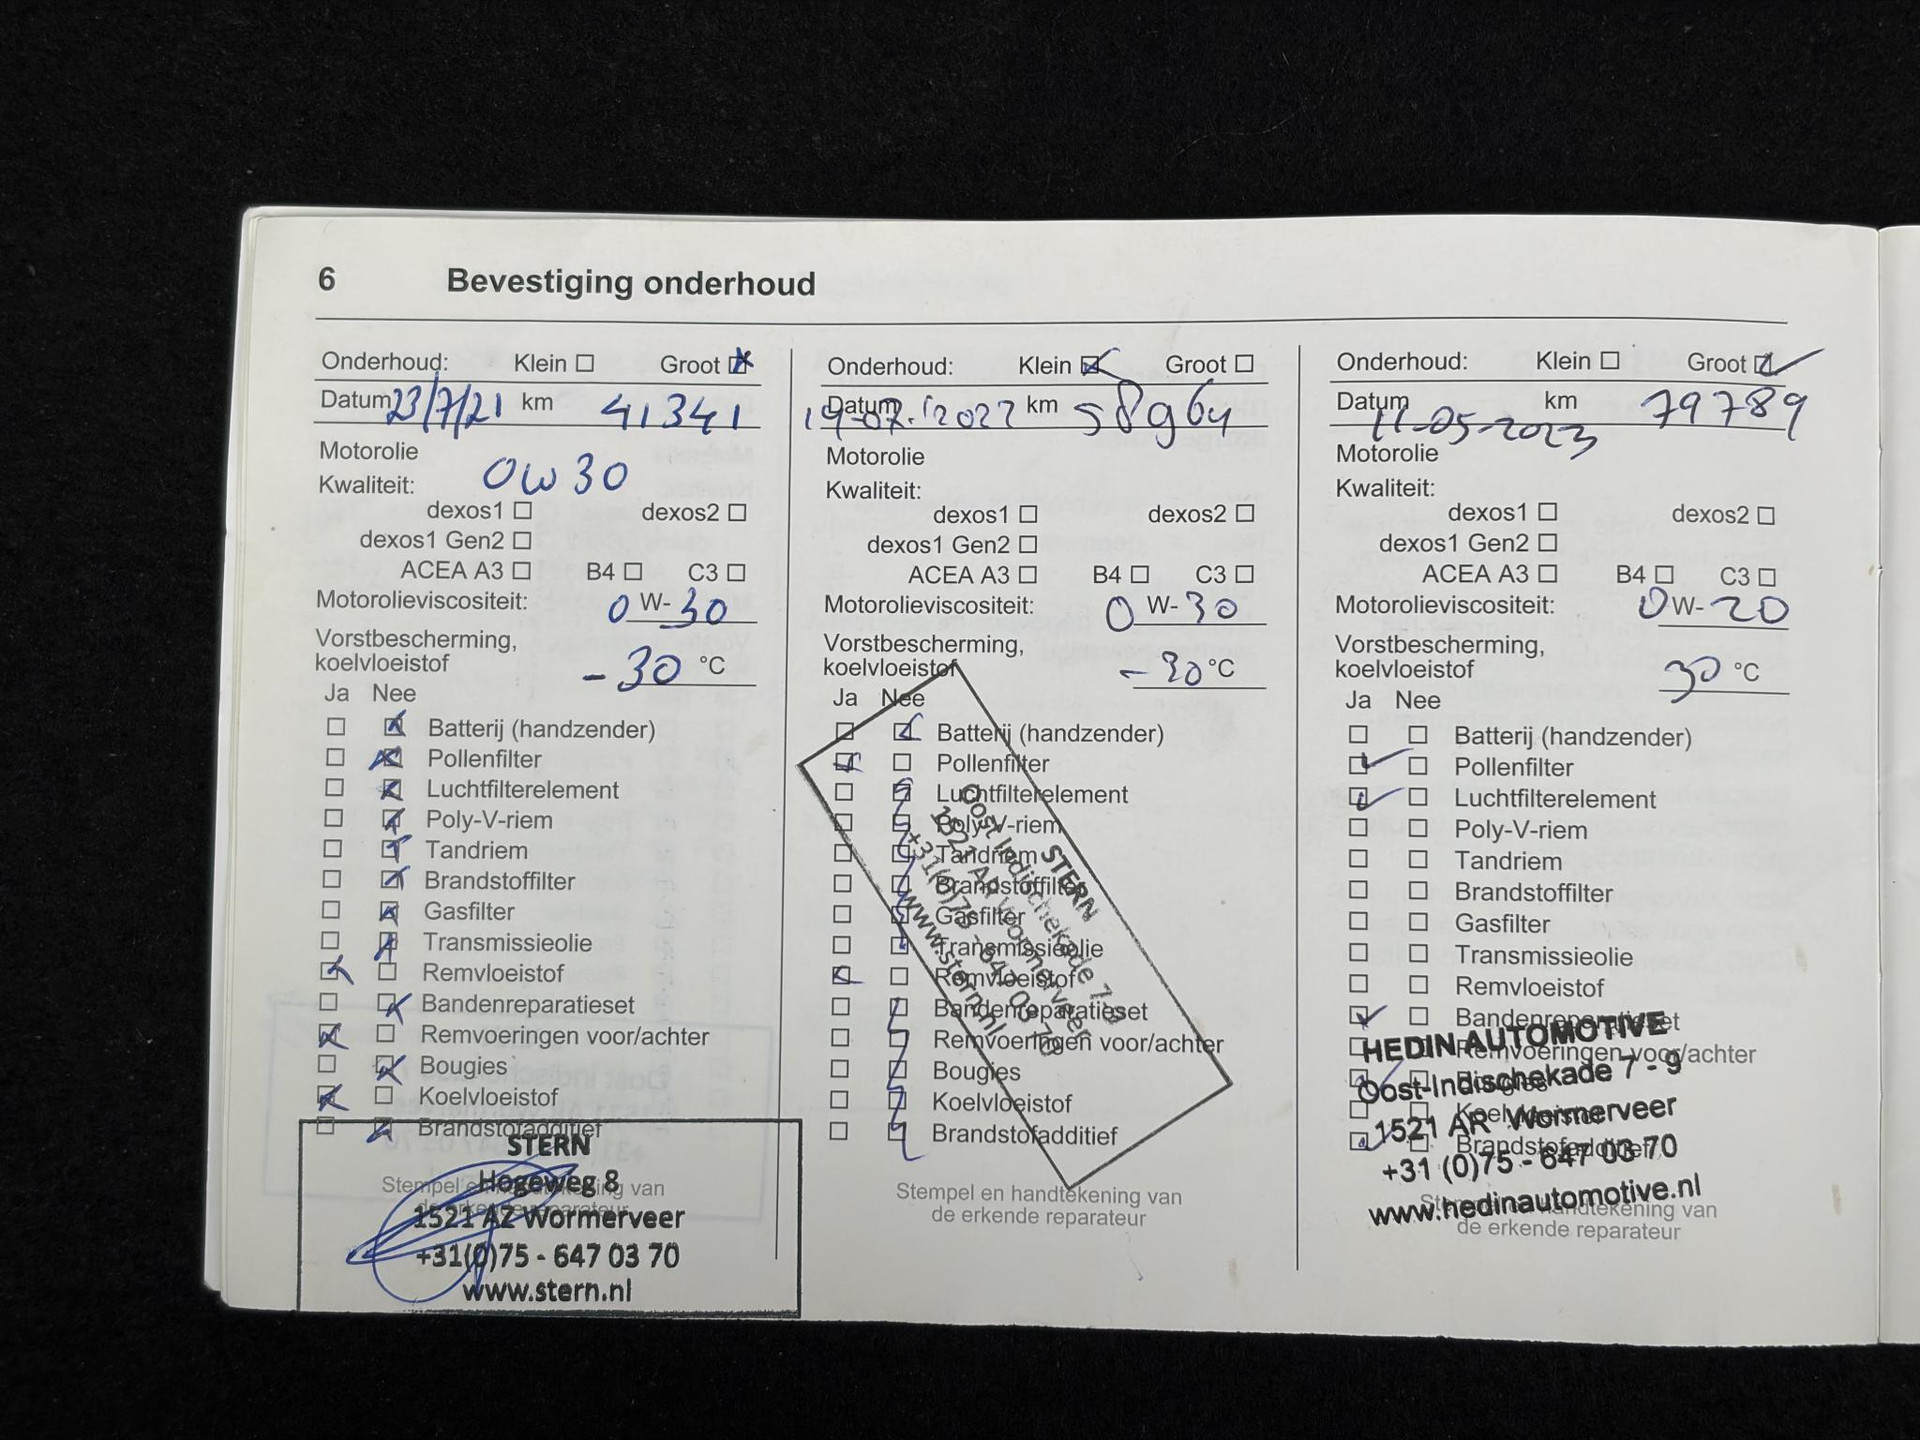 6 Bevestiging onderhoud
Onderhoud: Klein Groot
Datum 23/7/21 km 41341
Motorolie
Kwaliteit: 0W30
dexos1 dexos2
dexos1 Gen2
ACEA A3 B4 C3
Motorolieviscositeit: 0 W- 30
Vorstbescherming,
koelvloeistof -30 °C
Ja Nee
Batterij (handzender)
Pollenfilter
Luchtfilterelement
Poly-V-riem
Tandriem
Brandstoffilter
Gasfilter
Transmissieolie
Remvloeistof
Bandenreparatieset
Remvoeringen voor/achter
Bougies
Koelvloeistof
Brandstofadditief
Stempel en handtekening van
de erkende reparateur
STERN
Hogeweg 8
1521 AZ Wormerveer
+31(0)75 - 647 03 70
www.stern.nl
Onderhoud: Klein Groot
Datum 19-07-2022 km 58964
Motorolie
Kwaliteit:
dexos1 dexos2
dexos1 Gen2
ACEA A3 B4 C3
Motorolieviscositeit: 0 W- 30
Vorstbescherming,
koelvloeistof -30 °C
Ja Nee
Batterij (handzender)
Pollenfilter
Luchtfilterelement
Poly-V-riem
Tandriem
Brandstoffilter
Gasfilter
Transmissieolie
Remvloeistof
Bandenreparatieset
Remvoeringen voor/achter
Bougies
Koelvloeistof
Brandstofadditief
Stempel en handtekening van
de erkende reparateur
STERN
Oost Indischekade 7-9
1521 AR Wormerveer
+31(0)75 - 647 03 70
www.stern.nl
Onderhoud: Klein Groot
Datum 11-05-2023 km 79789
Motorolie
Kwaliteit:
dexos1 dexos2
dexos1 Gen2
ACEA A3 B4 C3
Motorolieviscositeit: 0 W- 20
Vorstbescherming,
koelvloeistof 30 °C
Ja Nee
Batterij (handzender)
Pollenfilter
Luchtfilterelement
Poly-V-riem
Tandriem
Brandstoffilter
Gasfilter
Transmissieolie
Remvloeistof
Bandenreparatieset
Remvoeringen voor/achter
Bougies
Koelvloeistof
Brandstofadditief
Stempel en handtekening van
de erkende reparateur
HEDIN AUTOMOTIVE
Oost-Indischekade 7 - 9
1521 AR Wormerveer
+31 (0)75 - 647 03 70
www.hedinautomotive.nl